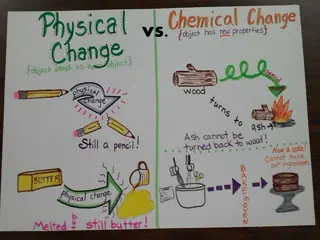 Physical Change
{object stays as same object}
physical change
Still a pencil!
BUTTER
physical change
Melted but still butter!
vs.
Chemical Change
{object has new properties}
wood
turns to
Ash
Ash cannot be
turned back to wood!
BAKE IN OVEN
Now a cake!
Cannot take
out ingredients